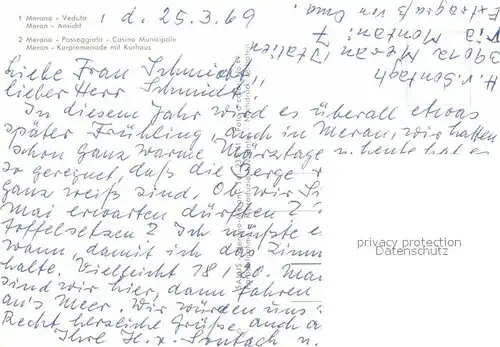 1 Merano - Veduta
Meran - Ansicht
2 Merano - Passeggiata - Casino Municipale
Meran - Kurpromenade mit Kurhaus
1 d. 25.3.69
H. v. Sontagh
39012 Meran Italien
Via Montani 7
Extragruß von Oma
Liebe Frau Schmidt,
lieber Herr Schmidt,
In diesem Jahr wird es überall etwas
später Frühling, auch in Meran, wir hatten
schon ganz warme Märztage u. heute hat es
so geregnet, daß die Berge
ganz weiß sind. Ob wir
Mai erwarten dürfen?
toffelsetzen? Ich müßte e
wann, damit ich das Zimm
halte. Vielleicht 18 20. Mai
sind wir hier, dann fahren
an's Meer. Wir würden uns
Recht herzliche Grüße auch a
Ihre H. v. Sontach u.
privacy protection
Datenschutz